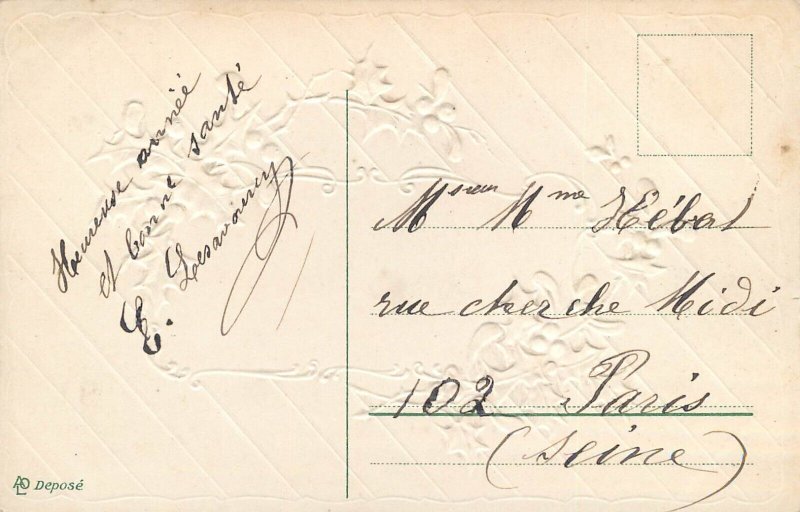 Heureuse année
et bonne santé
E.
Msieur Mme Hébal
rue cherche Midi
102 Paris
(Seine)
Deposé